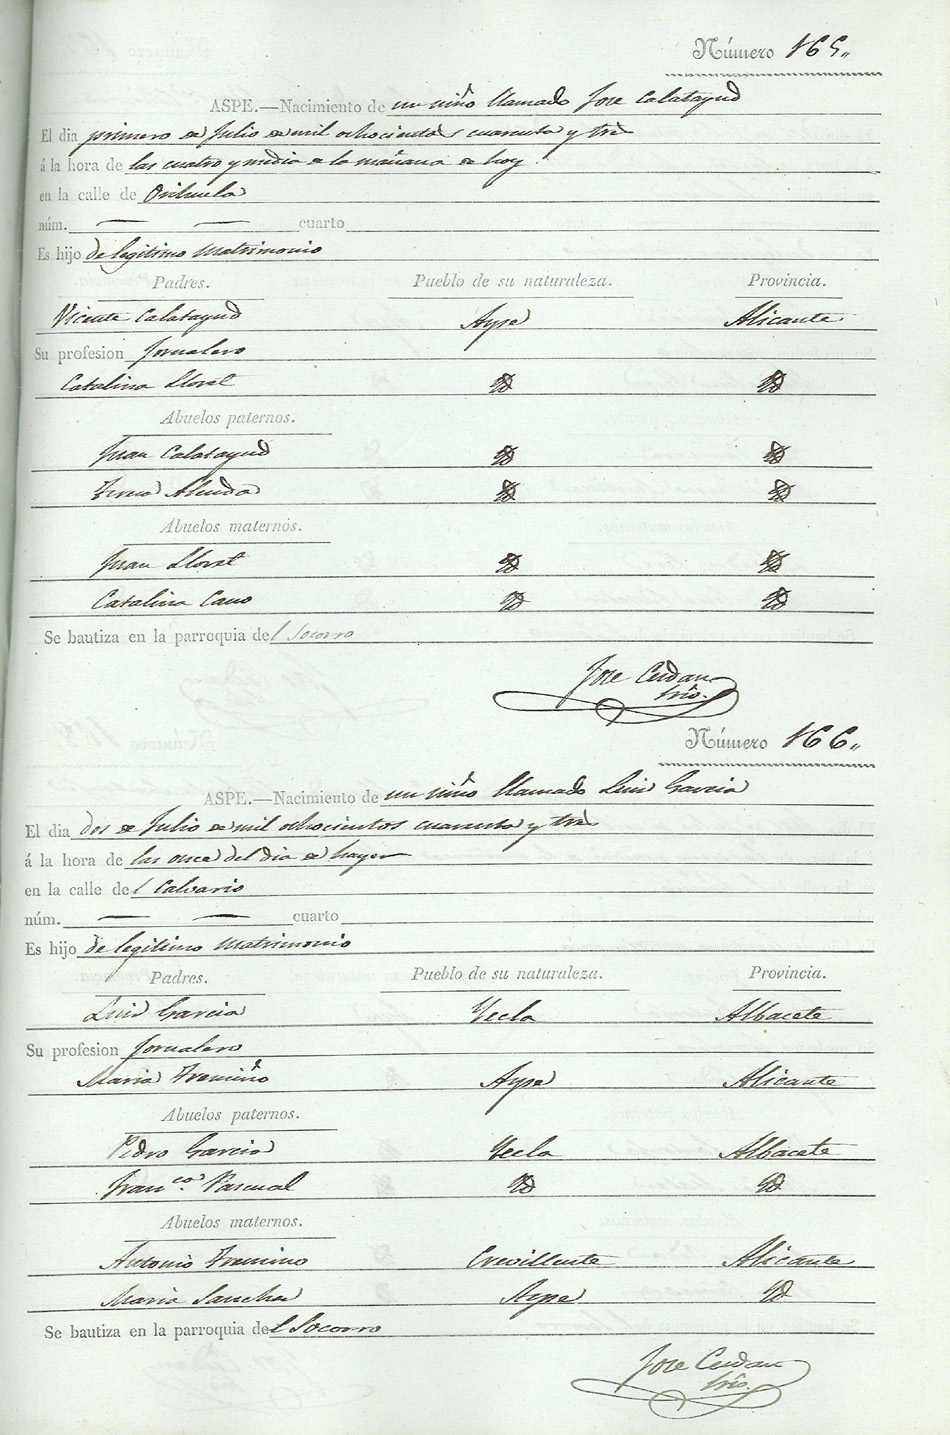 Número 165„
ASPE.—Nacimiento de un niño llamado Jose Calatayud
El dia primero de Julio de mil ochocientos cuarenta y tres
á la hora de las cuatro y media de la mañana de hoy.
en la calle de Orihuela
núm. — — cuarto
Es hijo de legitimo Matrimonio
Padres. Pueblo de su naturaleza. Provincia.
Vicente Calatayud Aspe Alicante
Su profesion Jornalero
Catalina Lloret Yd Yd
Abuelos paternos.
Juan Calatayud Yd Yd
Yd Yd
Abuelos maternos.
Juan Lloret Yd Yd
Catalina Cano Yd Yd
Se bautiza en la parroquia del Socorro
Jose Cerdan
Srio.
Número 166„
ASPE.—Nacimiento de un niño llamado Luis Garcia
El dia dos de Julio de mil ochocientos cuarenta y tres
á la hora de las once del dia de hayer
en la calle del Calvario
núm. — — cuarto
Es hijo de legitimo Matrimonio
Padres. Pueblo de su naturaleza. Provincia.
Luis Garcia Yecla Albacete
Su profesion Jornalero
Maria Tremiño Aspe Alicante
Abuelos paternos.
Pedro Garcia Yecla Albacete
Fran.ca Pascual Yd Yd
Abuelos maternos.
Antonio Tremino Crevillente Alicante
Maria Sanchez Aspe Yd
Se bautiza en la parroquia del Socorro
Jose Cerdan
Srio.